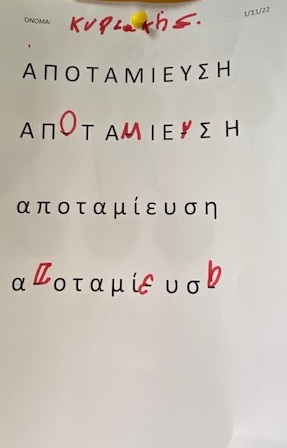 ΟΝΟΜΑ: κυριακής.
1/11/22
ΑΠΟΤΑΜΙΕΥΣΗ
ΑΠΟΤΑΜΙΕΥΣΗ
αποταμίευση
αποταμίευση